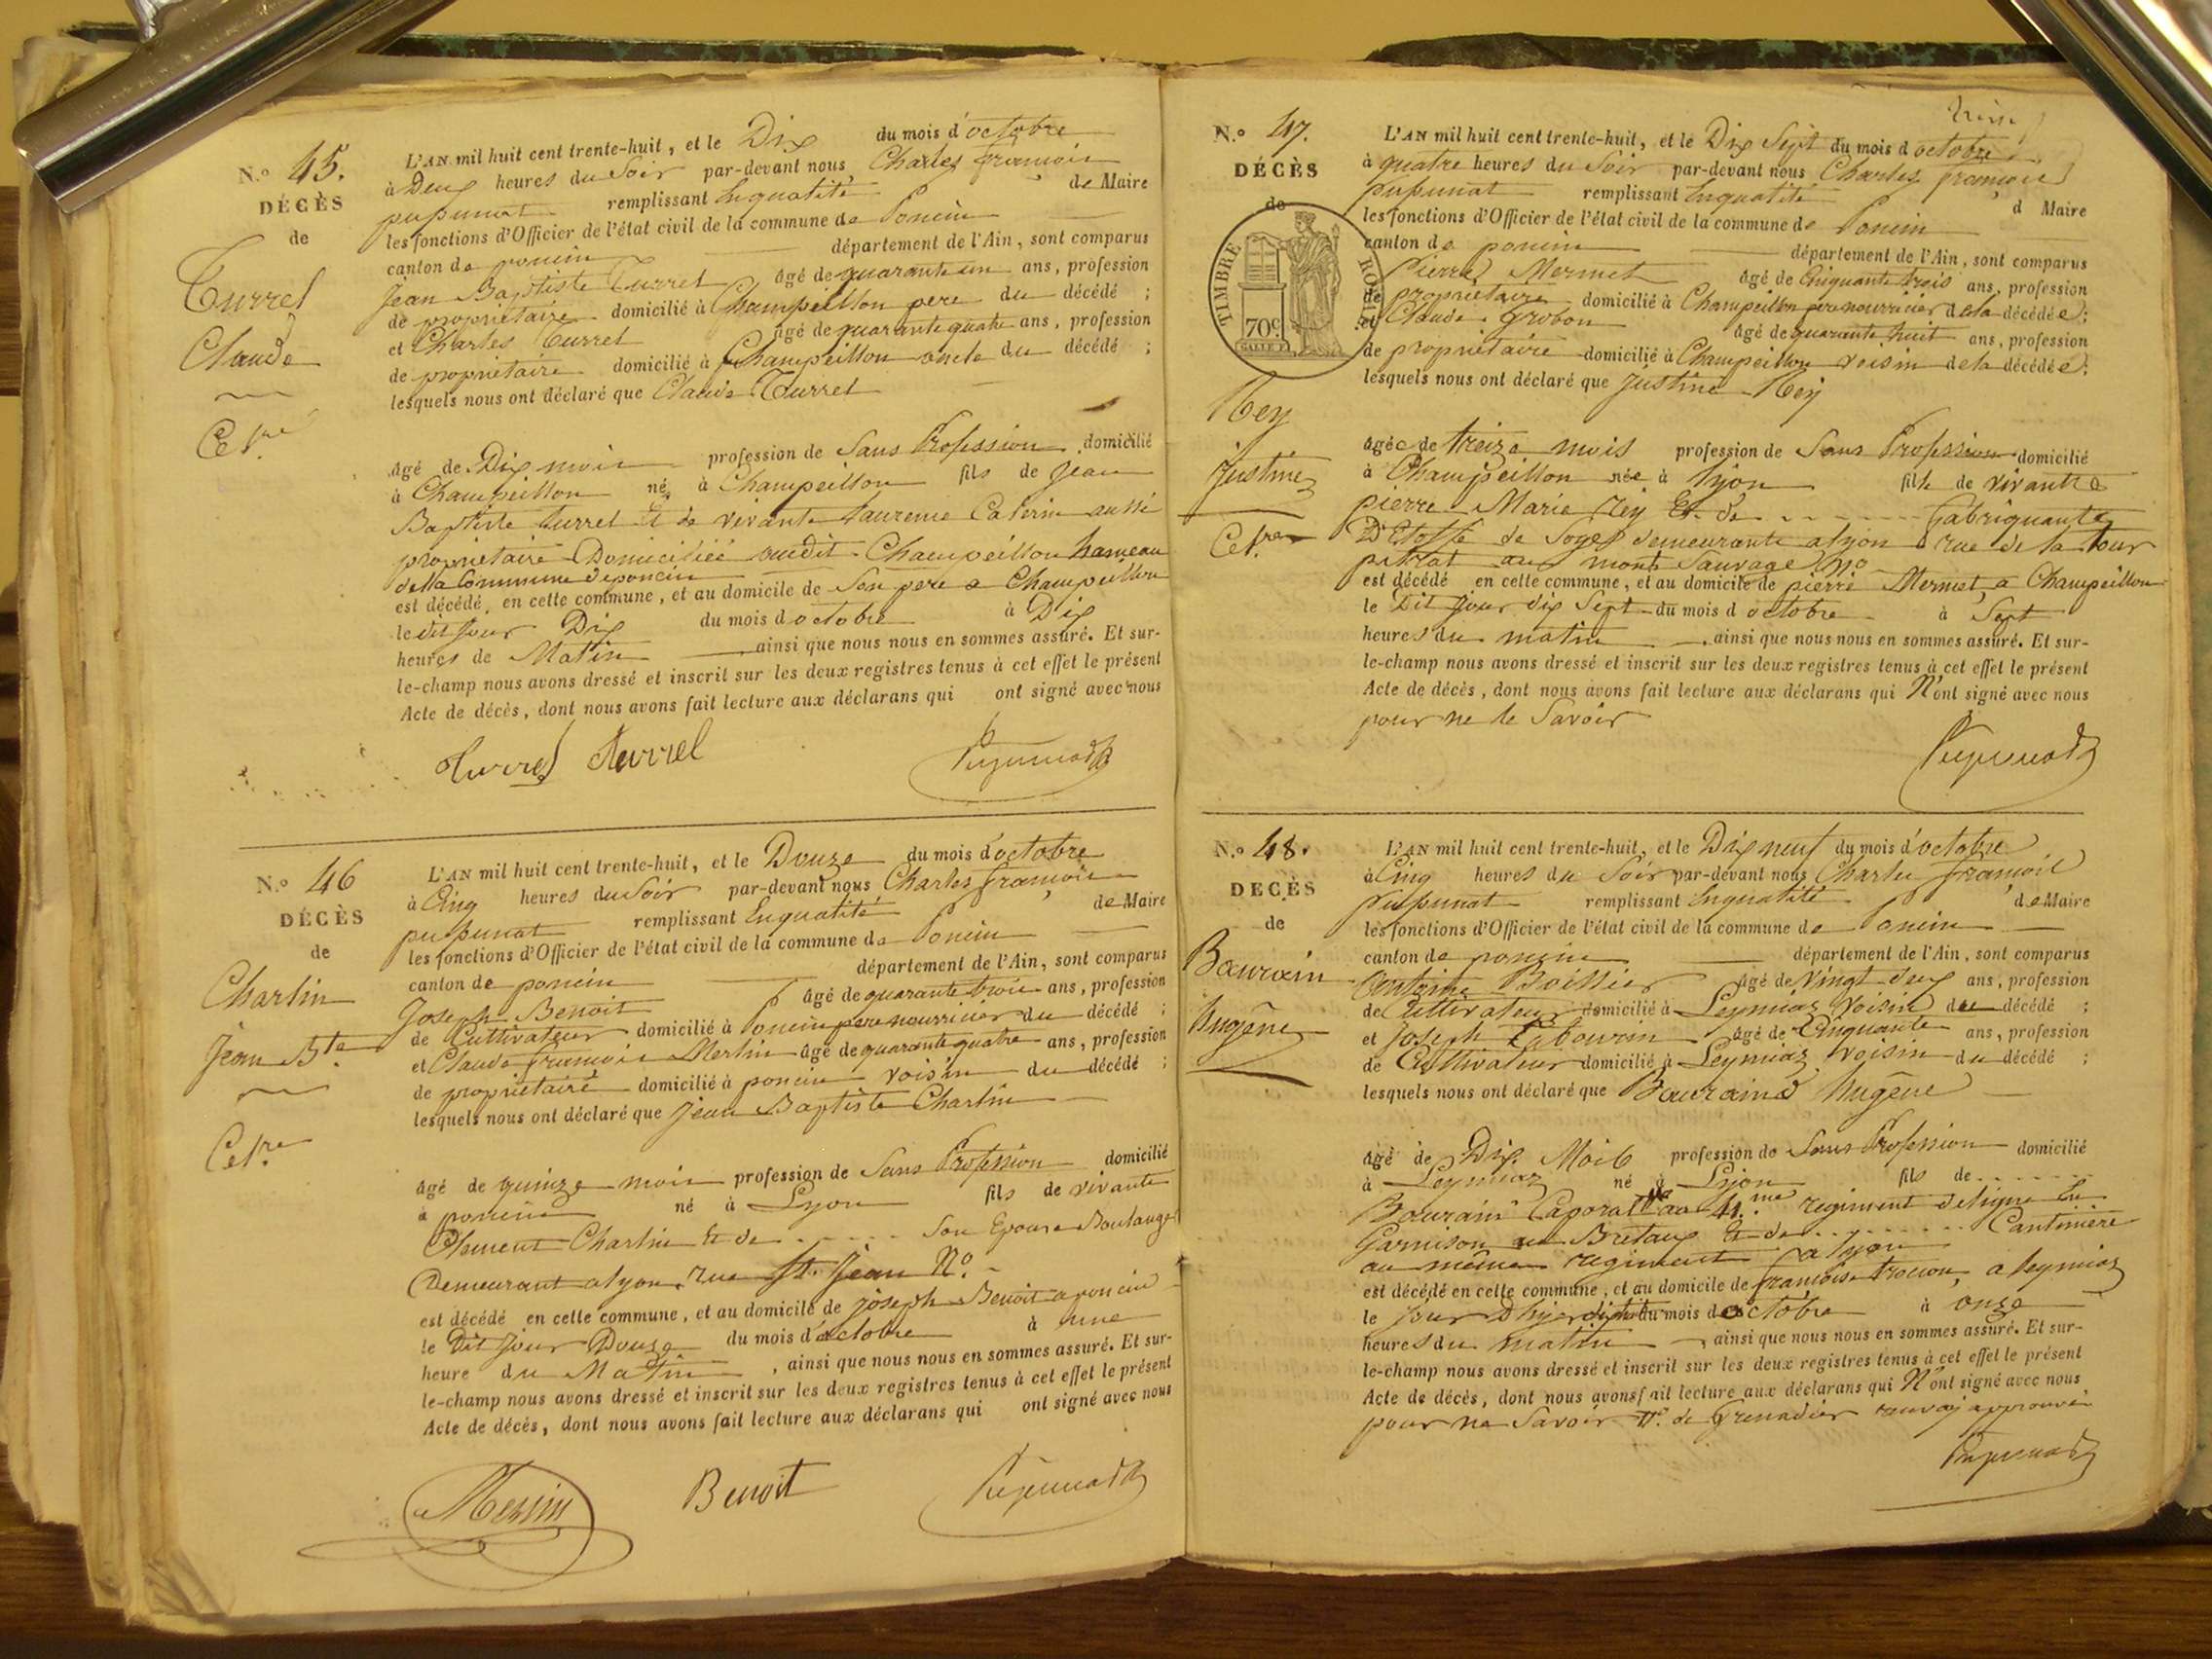 N.º 45.
DÉCÈS
de
Turrel
Claude
Cel.re
L'AN mil huit cent trente-huit, et le Dix du mois d'octobre
à Deux heures du Soir par-devant nous Charles françois
pupunat remplissant Enqualité de Maire
les fonctions d'Officier de l'état civil de la commune de Poncin
canton de poncin département de l'Ain, sont comparus
Jean Baptiste Turrel âgé de quarante un ans, profession
de propriétaire domicilié à Champeillon pere du décédé ;
et Charles Turrel âgé de quarante quatre ans, profession
de propriétaire domicilié à Champeillon oncle du décédé ;
lesquels nous ont déclaré que Claude Turrel
âgé de Dix mois profession de Sans Profession domicilié
à Champeillon né à Champeillon fils de Jean
Baptiste Turrel Et de vivante Laurence Caterin aussi
propriétaire Domiciliéé audit Champeillon hameau
della Commune de poncin
est décédé en cette commune, et au domicile de Son pere a Champeillon
le dit Jour Dix du mois d octobre à Dix
heures de Matin ainsi que nous nous en sommes assuré. Et sur-
le-champ nous avons dressé et inscrit sur les deux registres tenus à cet effet le présent
Acte de décès, dont nous avons fait lecture aux déclarans qui ont signé avec nous
Turrel Turrel Pupunat
N.º 46
DÉCÈS
de
Charlin
Jean B.te
Cel.re
L'AN mil huit cent trente-huit, et le Douze du mois d'octobre
à Cinq heures du Soir par-devant nous Charles françois
pupunat remplissant Enqualité de Maire
les fonctions d'Officier de l'état civil de la commune de Poncin
canton de poncin département de l'Ain, sont comparus
Joseph Benoit âgé de quarante trois ans, profession
de Cultivateur domicilié à Poncin pere nourricier du décédé ;
et Claude françois Merlin âgé de quarante quatre ans, profession
de propriétaire domicilié à poncin voisin du décédé ;
lesquels nous ont déclaré que Jean Baptiste Charlin
âgé de quinze mois profession de Sans Profession domicilié
à poncin né à Lyon fils de vivante
Clement Charlin Et de . . . . . Son Epouse Boulanger
Demeurant a lyon, rue St. Jean Nº.
est décédé en cette commune, et au domicile de joseph Benoit a poncin
le Dit jour Douze du mois d'octobre à une
heure du Matin, ainsi que nous nous en sommes assuré. Et sur-
le-champ nous avons dressé et inscrit sur les deux registres tenus à cet effet le présent
Acte de décès, dont nous avons fait lecture aux déclarans qui ont signé avec nous
Benoit Pupunat
N.º 47.
DÉCÈS
de
TIMBRE ROYAL
70c
Rey
Justine
Cel.re
L'AN mil huit cent trente-huit, et le Dix Sept du mois d octobre
à quatre heures du Soir par-devant nous Charles françois
pupunat remplissant Enqualité d Maire
les fonctions d'Officier de l'état civil de la commune de Poncin
canton de poncin département de l'Ain, sont comparus
Pierre Mermet âgé de Cinquante trois ans, profession
de propriétaire domicilié à Champeillon pere nourricier de la décédée ;
et Claude Grobon âgé de quarante huit ans, profession
de propriétaire domicilié à Champeillon voisin de la décédée ;
lesquels nous ont déclaré que Justine Rey
âgée de treize mois profession de Sans Profession domicilié
à Champeillon née à lyon fille de vivantes
pierre Marie Rey Et de . . . . . . fabriquante
D'Etoffe de Soyes demeurante a lyon rue de la tour
pitrat au mont Sauvage Nº
est décédé en cette commune, et au domicile de pierre Mermet, a Champeillon
le Dit Jour dix Sept du mois d octobre à Sept
heures du matin ainsi que nous nous en sommes assuré. Et sur-
le-champ nous avons dressé et inscrit sur les deux registres tenus à cet effet le présent
Acte de décès, dont nous avons fait lecture aux déclarans qui N'ont signé avec nous
pour ne le Savoir
Pupunat
N.º 48.
DÉCÈS
de
Baurain
hugêne
L'AN mil huit cent trente-huit, et le Dix neuf du mois d'octobre
à Cinq heures du Soir par-devant nous Charles françois
Pupunat remplissant Enqualité de Maire
les fonctions d'Officier de l'état civil de la commune de Poncin
canton de poncin département de l'Ain, sont comparus
Antoine Boissier âgé de vingt deux ans, profession
de Cultivateur domicilié à Leymiaz Voisin du décédé ;
et Joseph âgé de Cinquante ans, profession
de Cultivateur domicilié à Leymiaz Voisin du décédé ;
lesquels nous ont déclaré que Baurain hugêne
âgé de Dix Mois profession de Sans Profession domicilié
à Leymiaz né à Lyon fils de . . . . . .
Bourain Caporal au 41.me regiment de ligne En
Garnison en Bretaux Et de . . . . . . Cantinière
au même regiment a lyon
est décédé en cette commune, et au domicile de françoise a leymiaz
le jour D'hyer du mois d octobre à onze
heures du matin ainsi que nous nous en sommes assuré. Et sur-
le-champ nous avons dressé et inscrit sur les deux registres tenus à cet effet le présent
Acte de décès, dont nous avons fait lecture aux déclarans qui N'ont signé avec nous
pour ne Savoir de Grenadier approuvé
Pupunat